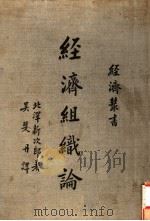 經濟叢書
經濟組織論
北澤新次郎著
吳斐丹譯